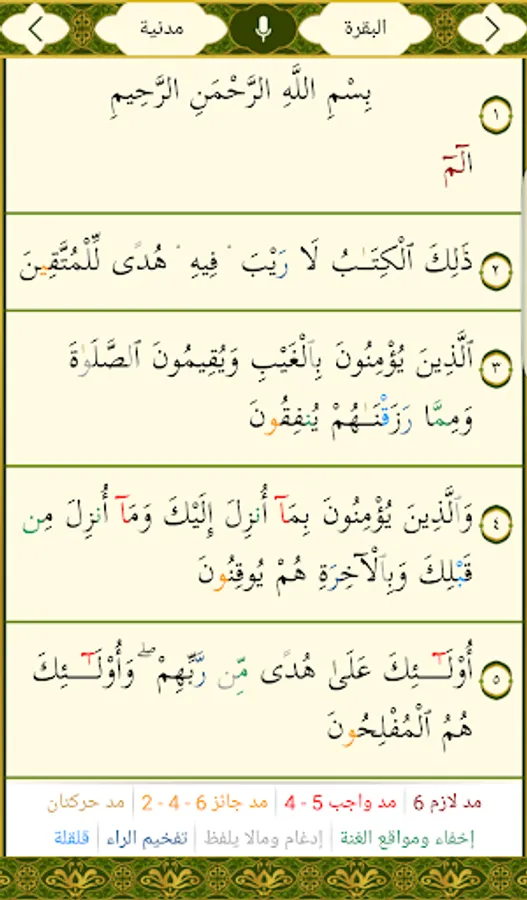 البقرة
مدنية
١
بِسْمِ اللَّهِ الرَّحْمَنِ الرَّحِيمِ
الٓمٓ
٢
ذَٰلِكَ ٱلْكِتَـٰبُ لَا رَيْبَ ۛ فِيهِ ۛ هُدًى لِّلْمُتَّقِينَ
٣
ٱلَّذِينَ يُؤْمِنُونَ بِٱلْغَيْبِ وَيُقِيمُونَ ٱلصَّلَوٰةَ
وَمِمَّا رَزَقْنَـٰهُمْ يُنفِقُونَ
٤
وَٱلَّذِينَ يُؤْمِنُونَ بِمَآ أُنزِلَ إِلَيْكَ وَمَآ أُنزِلَ مِن
قَبْلِكَ وَبِٱلْـَٔاخِرَةِ هُمْ يُوقِنُونَ
٥
أُو۟لَـٰٓئِكَ عَلَىٰ هُدًى مِّن رَّبِّهِمْ ۖ وَأُو۟لَـٰٓئِكَ
هُمُ ٱلْمُفْلِحُونَ
مد لازم 6 | مد واجب 5 - 4 | مد جائز 6 - 4 - 2 | مد حركتان
إخفاء ومواقع الغنة | إدغام ومالا يلفظ | تفخيم الراء | قلقلة